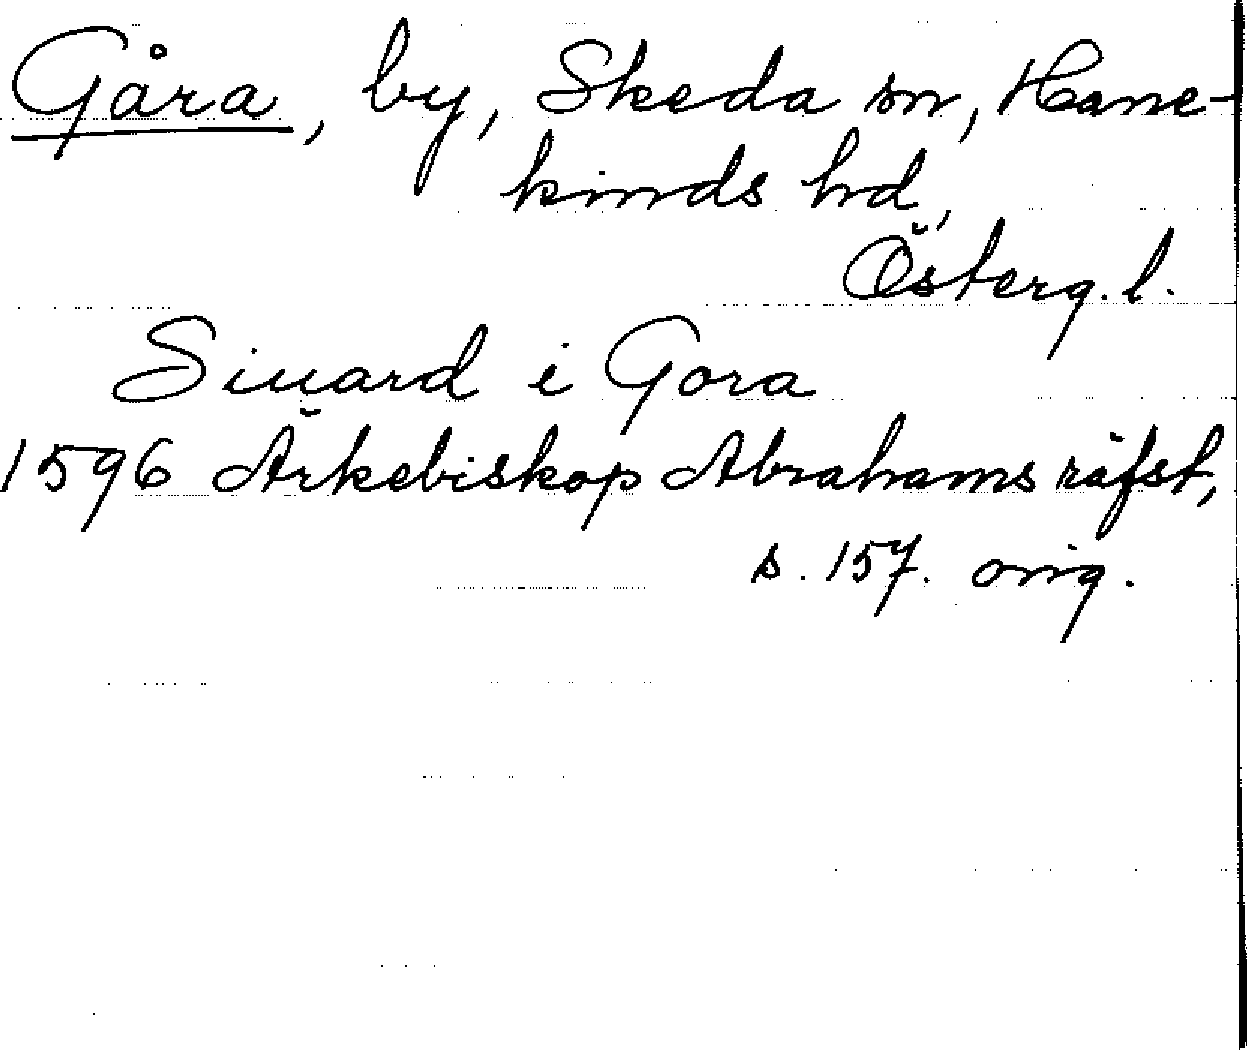 Gåra, by, Skeda sn, Hane-
kinds hd,
Österg. l.
Siuard i Gora
1596 Ärkebiskop Abrahams räfst,
s. 157. orig.